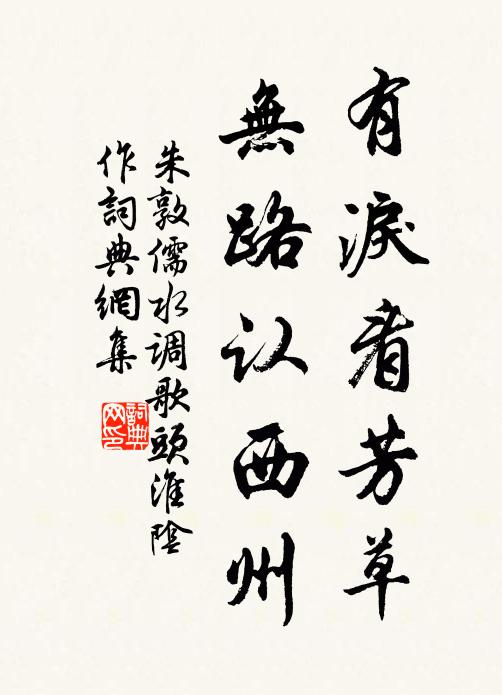 有淚看芳草
無路认西州
朱敦儒水调歌頭淮陰
作詞典網集
詞典网印